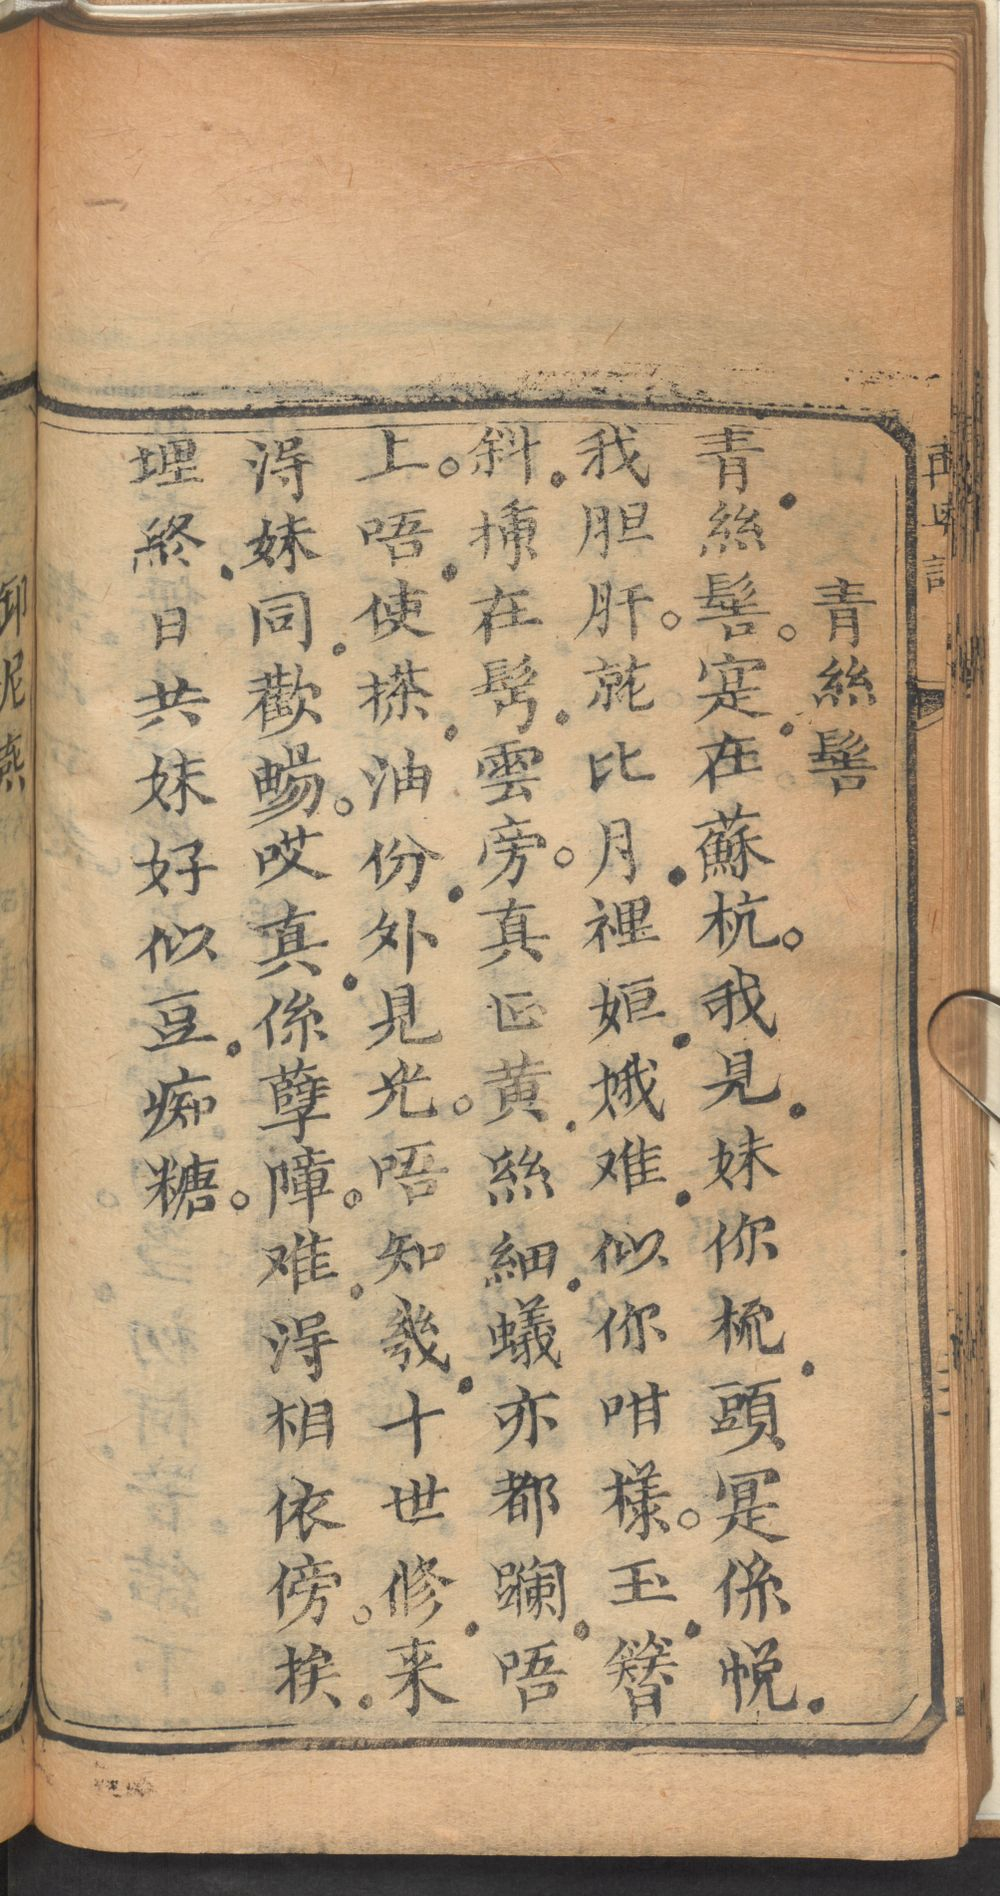 青絲髻
青絲髻寔在蘇杭我見妹你梳頭寔係悅
我胆肝就比月裡姮娥难似你咁樣玉簪
斜揷在髩雲旁真正黄絲細蟻亦都躝唔
上唔使搽油份外見光唔知幾十世修来
淂妹同歡暢哎真係孽障难淂相依傍挨
埋終日共妹好似豆痴糖
卸泥燕